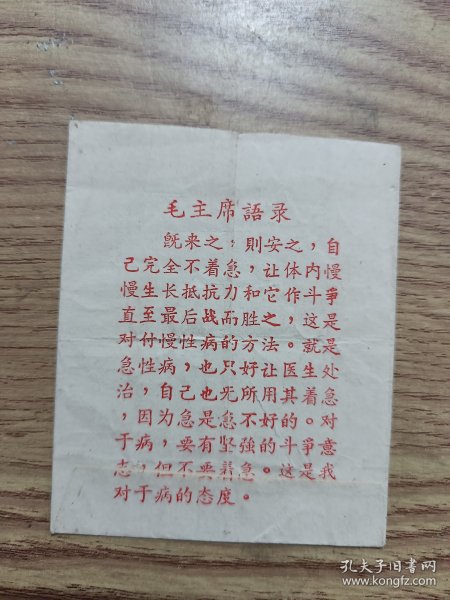 毛主席語录
既来之，則安之，自
己完全不着急，让体内慢
慢生长抵抗力和它作斗爭
直至最后战而胜之，这是
对付慢性病的方法。就是
急性病，也只好让医生处
治，自己也无所用其着急
，因为急是急不好的。对
于病，要有坚强的斗爭意
志，但不要着急。这是我
对于病的态度。
孔夫子旧书网
www.kongfz.com